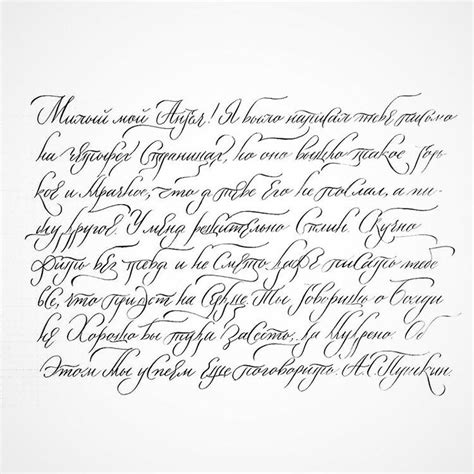 Милый мой Ангел! Я было написал тебе письмо
на четырех Страницах, но оно вышло такое горь
кое и Мрачное, что я тебе Его не послал, а пи-
шу другое. У меня решительно Сплин. Скучно
Жить без тебя и не Сметь даже писать тебе
все, что придет на Сердце. Ты Говоришь о Болди
не Хорошо бы туда Засесть, да Мудрено. Об
Этом Мы успеем Еще поговорить. А.С.Пушкин.